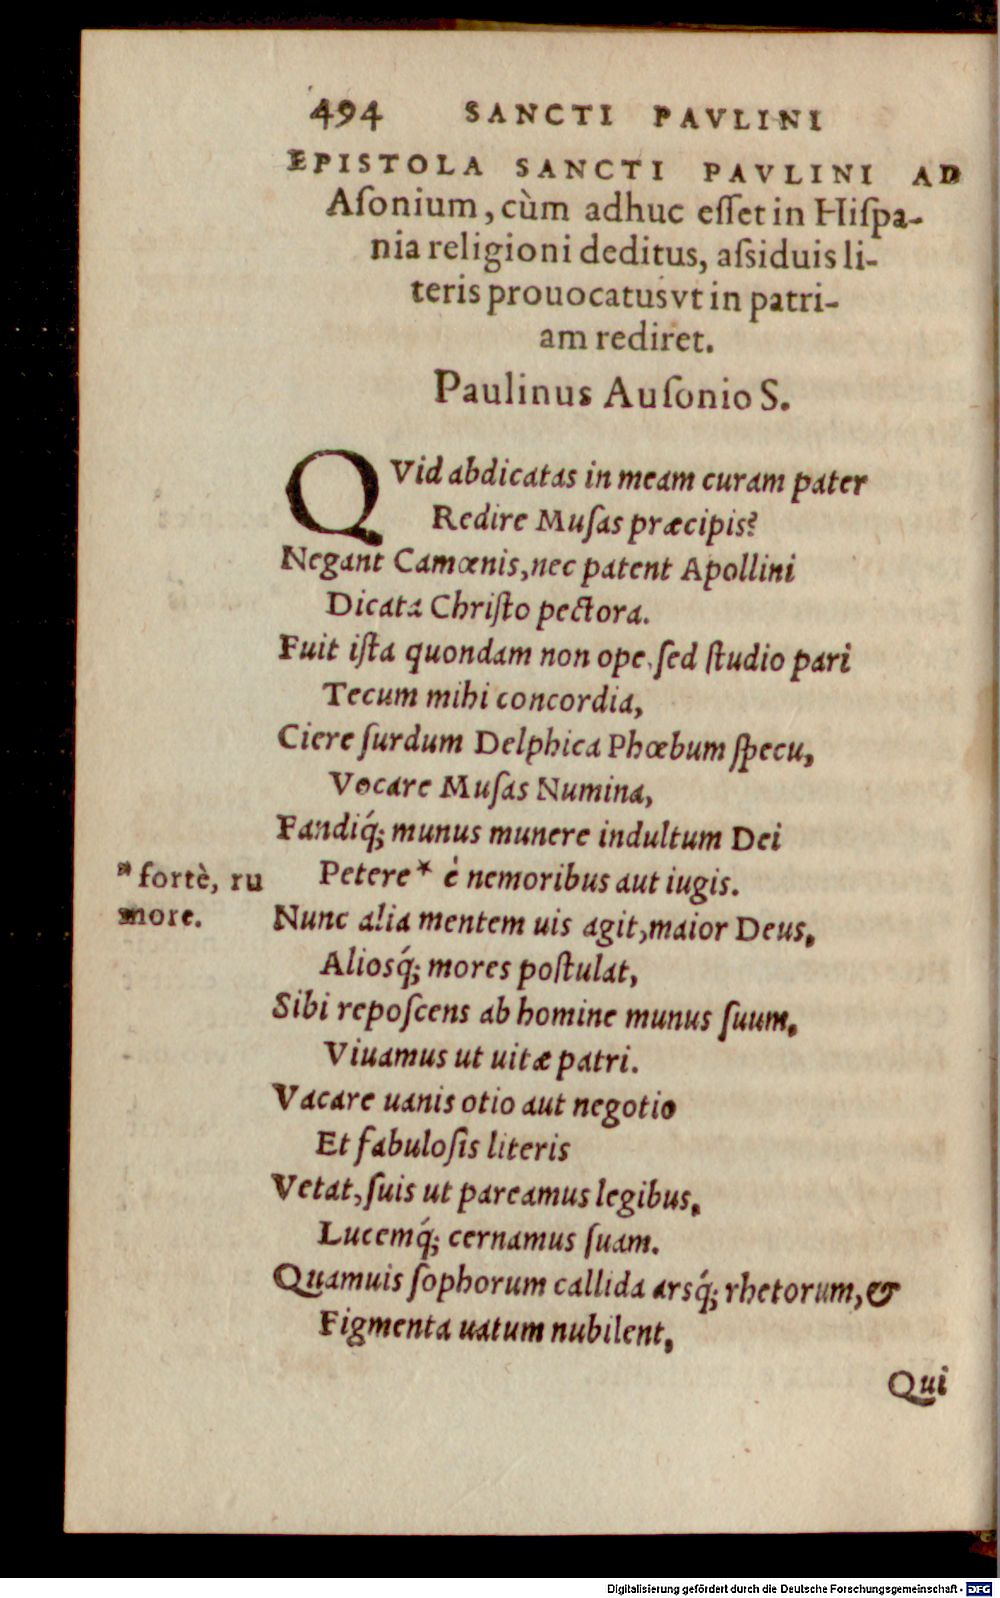 494 SANCTI PAVLINI
EPISTOLA SANCTI PAVLINI AD
Aſonium, cùm adhuc eſſet in Hiſpa-
nia religioni deditus, aſsiduis li-
teris prouocatus vt in patri-
am rediret.
Paulinus Auſonio S.
QVid abdicatas in meam curam pater
Redire Muſas præcipis?
Negant Camœnis, nec patent Apollini
Dicata Chriſto pectora.
Fuit iſta quondam non ope, ſed ſtudio pari
Tecum mihi concordia,
Ciere ſurdum Delphica Phœbum ſpecu,
Vocare Muſas Numina,
Fandiq́; munus munere indultum Dei
Petere* è nemoribus aut iugis.
* fortè, ru
more.
Nunc alia mentem uis agit, maior Deus,
Aliosq́; mores poſtulat,
Sibi repoſcens ab homine munus ſuum,
Viuamus ut uitæ patri.
Vacare uanis otio aut negotio
Et fabuloſis literis
Vetat, ſuis ut pareamus legibus,
Lucemq́; cernamus ſuam.
Quamuis ſophorum callida arsq́; rhetorum, &
Figmenta uatum nubilent,
Qui
Digitalisierung gefördert durch die Deutsche Forschungsgemeinschaft - DFG